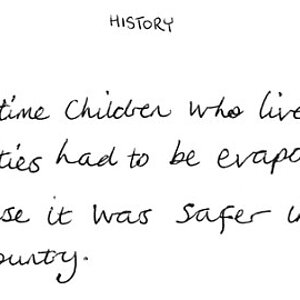 HISTORY
time Children who live
ties had to be evapo
se it was safer in
ountry.